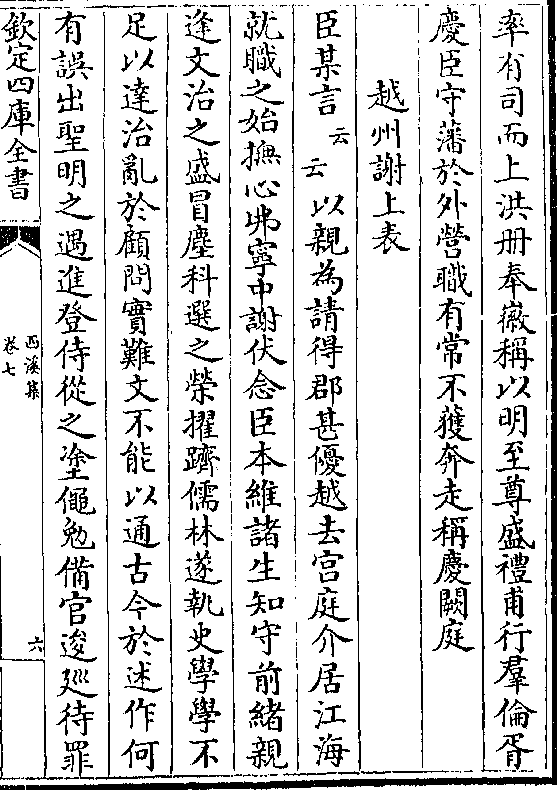 率有司而上洪册奉徽稱以明至尊盛禮甫行羣倫胥
慶臣守藩於外營職有常不獲奔走稱慶闕庭
越州謝上表
臣某言云云以親為請得郡甚優越去宫庭介居江海
就職之始撫心弗寧中謝伏念臣本維諸生知守前緒親
逢文治之盛冒塵科選之榮擢躋儒林遂執史學學不
足以達治亂於顧問實難文不能以通古今於述作何
有誤出聖明之遇進登侍從之塗僶勉備官逡廵待罪
欽定四庫全書
西溪集
卷七
六